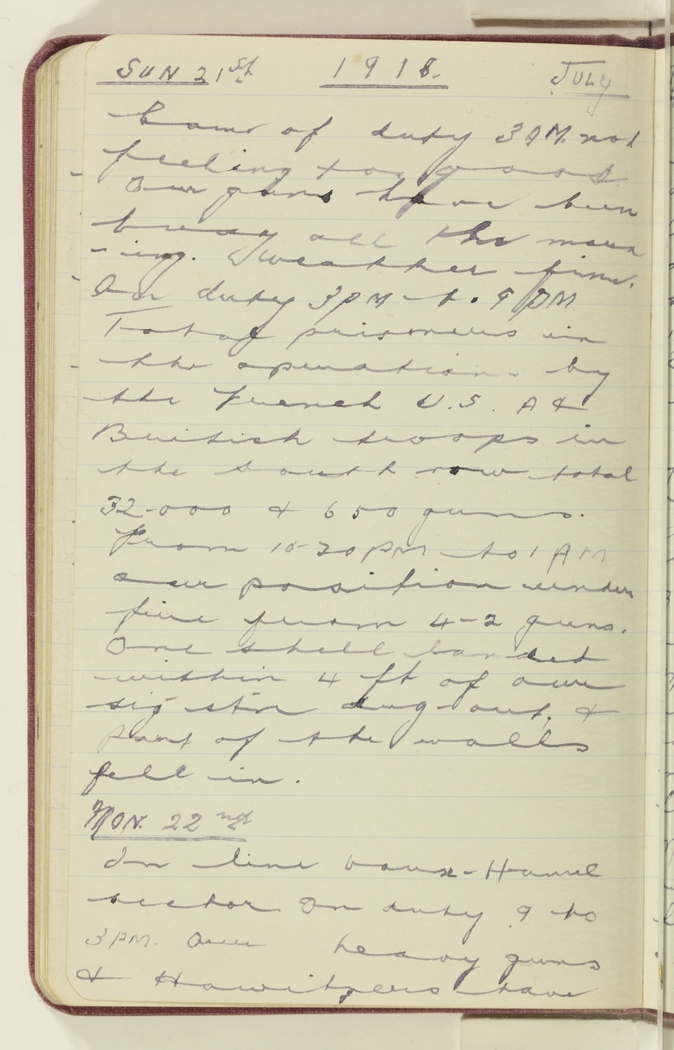 SUN 21st 1918. JULY
Came of duty 3 AM. not
feeling too good
Our guns have been
busy all the morn
-ing. Weather fine.
On duty 3 PM - to 9 PM
Total prisoners in
the operations by
the French U.S. A &
British troops in
the South now total
32-000 & 650 guns.
From 10-20 PM to 1 AM
our position under
fire from 4-2 guns.
One shell landed
within 4 ft of our
sig stn dug-out, &
part of the walls
fell in.
MON. 22nd
In line Vaux-Hamel
sector On duty 9 to
3 PM. Our heavy guns
& Howitzers have